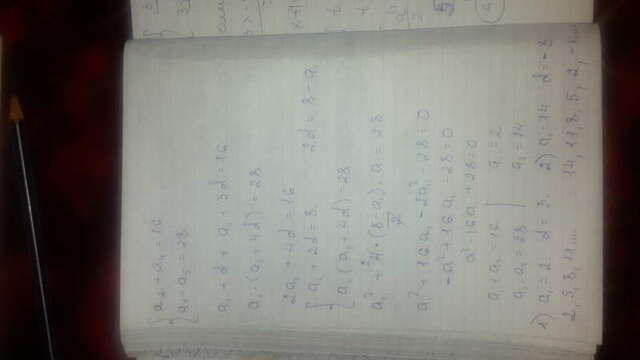 { a₂ + a₄ = 16
{ a₁ · a₅ = 28
a₁ + d + a₁ + 3d = 16
a₁ · (a₁ + 4d) = 28
2a₁ + 4d = 16
{ a₁ + 2d = 8 2d = 8 - a₁
{ a₁ (a₁ + 4d) = 28
a₁² + 4 · (8 - a₁)/2 · a₁ = 28
a₁² + 16a₁ - 2a₁² - 28 = 0
-a² + 16a₁ - 28 = 0
a² - 16a₁ + 28 = 0
a₁ + a₂ = 16 | a₁ = 2
a₁ · a₂ = 28 | a₂ = 14
1) a₁ = 2 d = 3. 2) a₁ = 14 d = -3
2, 5, 8, 11.... 14, 11, 8, 5, 2, -1...